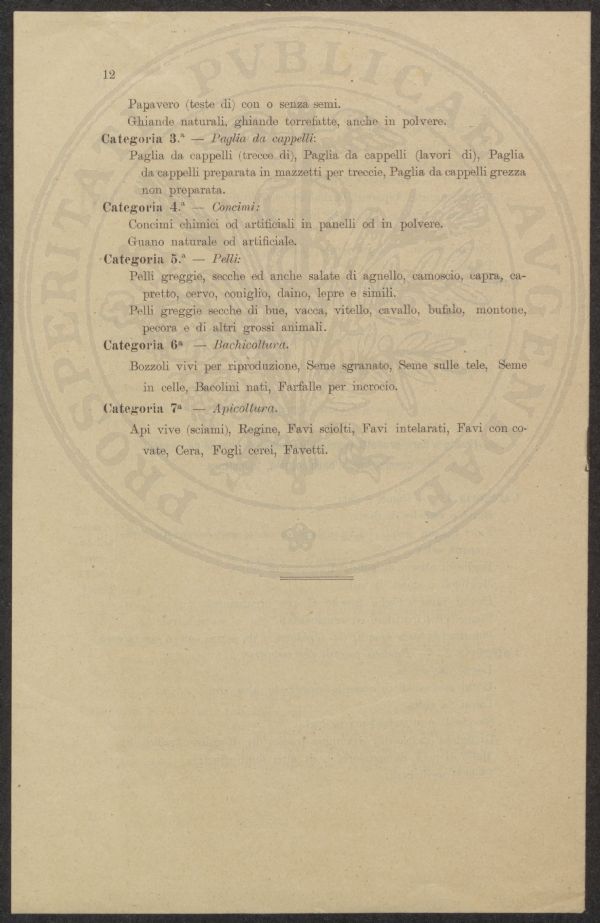 12
Papavero (teste di) con o senza semi.
Ghiande naturali, ghiande torrefatte, anche in polvere.
Categoria 3.ª — Paglia da cappelli:
Paglia da cappelli (trecce di), Paglia da cappelli (lavori di), Paglia
da cappelli preparata in mazzetti per treccie, Paglia da cappelli grezza
non preparata.
Categoria 4.ª — Concimi:
Concimi chimici od artificiali in panelli od in polvere.
Guano naturale od artificiale.
Categoria 5.ª — Pelli:
Pelli greggie, secche ed anche salate di agnello, camoscio, capra, ca-
pretto, cervo, coniglio, daino, lepre e simili.
Pelli greggie secche di bue, vacca, vitello, cavallo, bufalo, montone,
pecora e di altri grossi animali.
Categoria 6ª — Bachicoltura.
Bozzoli vivi per riproduzione, Seme sgranato, Seme sulle tele, Seme
in celle, Bacolini nati, Farfalle per incrocio.
Categoria 7ª — Apicoltura.
Api vive (sciami), Regine, Favi sciolti, Favi intelarati, Favi con co-
vate, Cera, Fogli cerei, Favetti.
PROSPERITATI PVBLICAE AVGENDAE